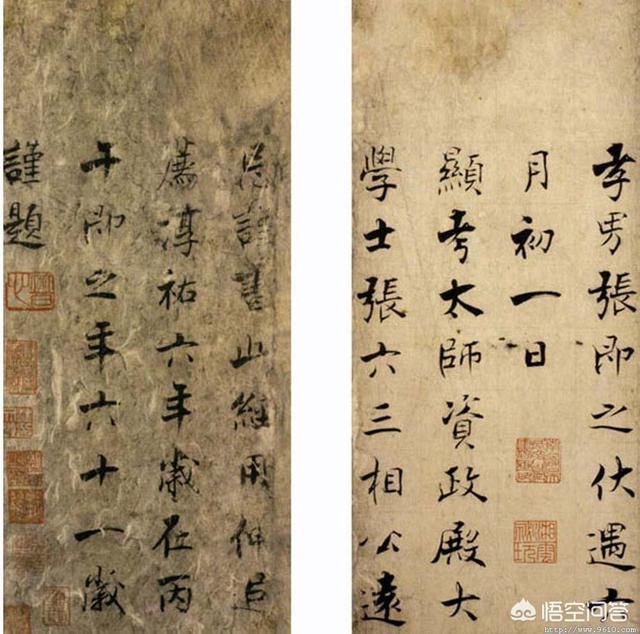 孝男張即之伏遇六
月初一日
顯考太師資政殿大
學士張六三相公遠
忌謹書此經用伸追
薦淳祐六年歲在丙
午即之年六十一歲
謹題
悟空问答
http://www.9610.com